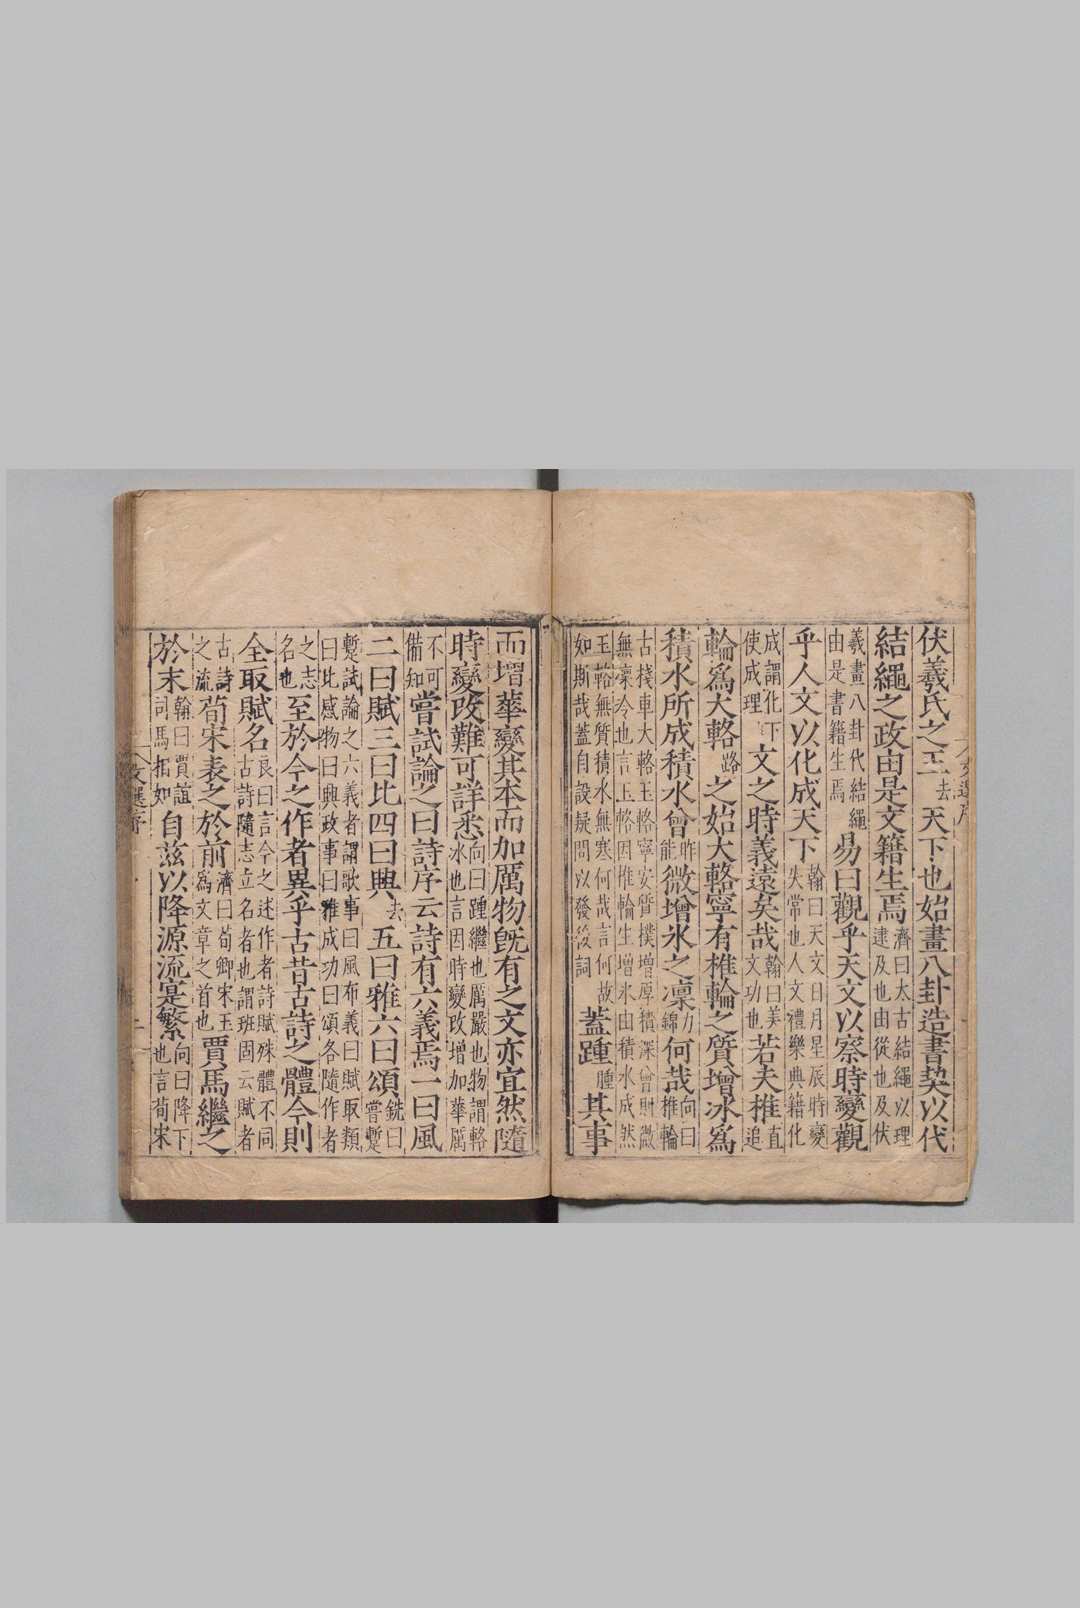 伏羲氏之王去天下也始畫八卦造書契以代
結繩之政由是文籍生焉濟曰太古結繩以理逮及也由從也及伏
羲畫八卦代結繩由是書籍生焉易曰觀乎天文以察時變觀
乎人文以化成天下翰曰天文日月星辰時變失常也人文禮樂典籍化
成謂化下使成理文之時義遠矣哉翰曰美文功也若夫椎直追
輪爲大輅路之始大輅寧有椎輪之質增冰爲
積水所成積水曾昨能微增氷之凜力錦何哉向曰椎輪
古棧車大輅玉輅寧安質撲增厚積深曾則微無凜冷也言玉輅因椎輪生增氷由積水成然
玉輅無質積水無寒何哉言何故如斯哉蓋自設疑問以發後詞蓋踵腫其事
而增華變其本而加厲物旣有之文亦宜然隨
時變改難可詳悉向曰踵繼也厲嚴也物謂輅氷也言因時變改增加華厲
不可備知嘗試論之曰詩序云詩有六義焉一曰風
二曰賦三曰比四曰興去五曰雅六曰頌銑曰嘗蹔
蹔試論之六義者謂歌事曰風布義曰賦取類曰比感物曰興政事曰雅成功曰頌各隨作者
之志名也至於今之作者異乎古昔古詩之體今則
全取賦名良曰言今之述作者詩賦殊體不同古詩隨志立名者也謂班固云賦者
古詩之流荀宋表之於前濟曰荀卿宋玉爲文章之首也賈馬繼之
於末翰曰賈誼司馬相如自茲以降源流寔繁向曰降下也言荀宋
文選序